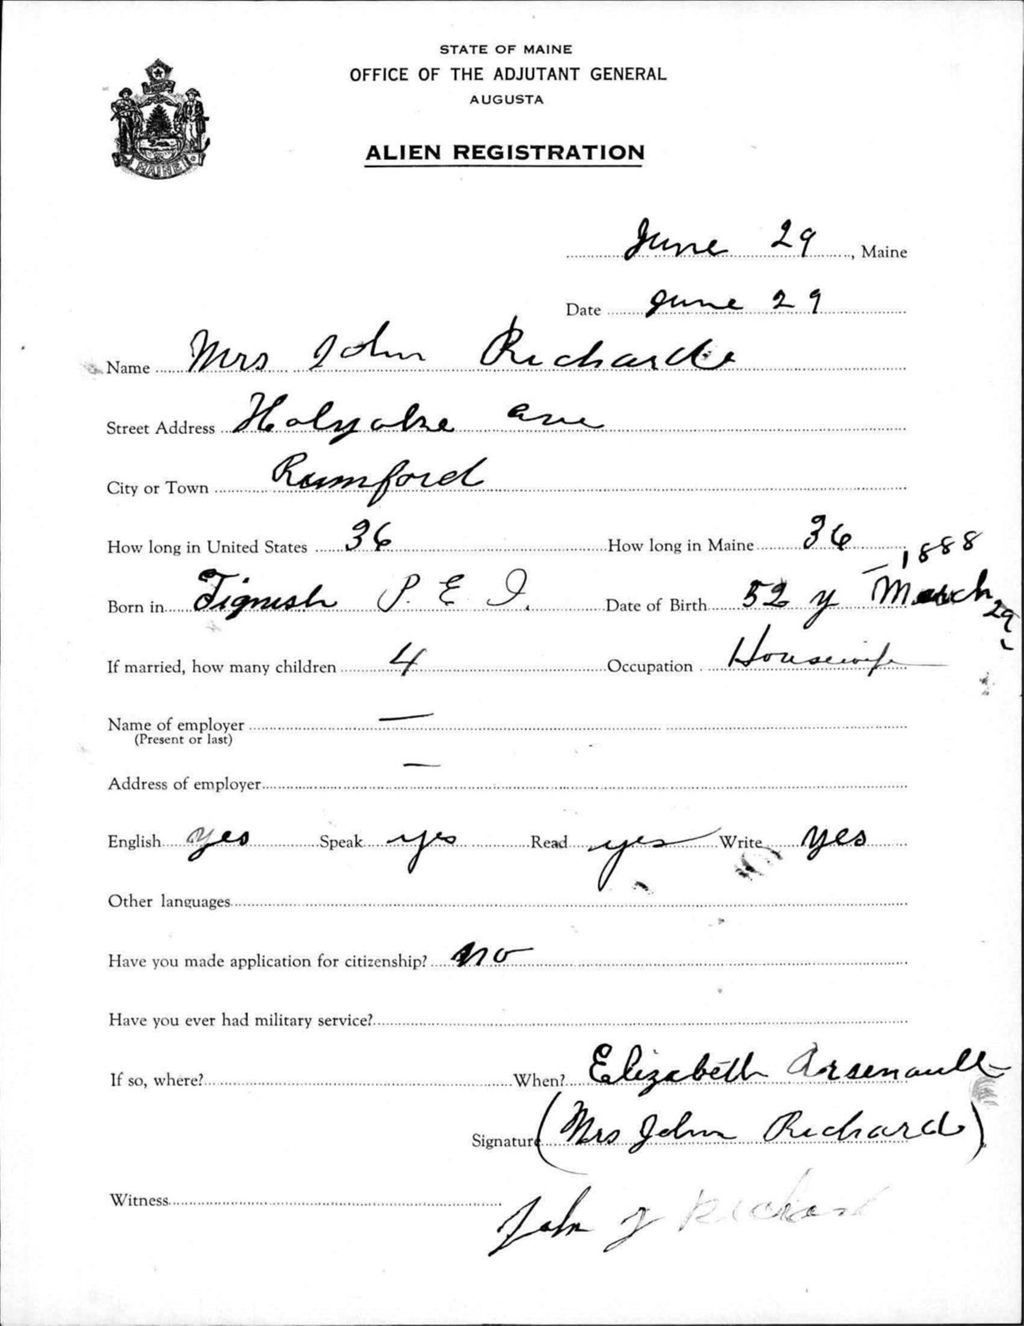 STATE OF MAINE
OFFICE OF THE ADJUTANT GENERAL
AUGUSTA
ALIEN REGISTRATION
MAINE
June 29, Maine
Date June 29
Name Mrs John Richards
Street Address Holyoke ave
City or Town Rumford
How long in United States 36 How long in Maine 36
Born in Tignish P. E. I. Date of Birth 52 y – March 29 – 1888
If married, how many children 4 Occupation Housewife
Name of employer —
(Present or last)
Address of employer —
English yes Speak yes Read yes Write yes
Other languages
Have you made application for citizenship? no
Have you ever had military service?
If so, where? When? Elizabeth Arsenault
Signature (Mrs John Richard)
Witness John J Richard